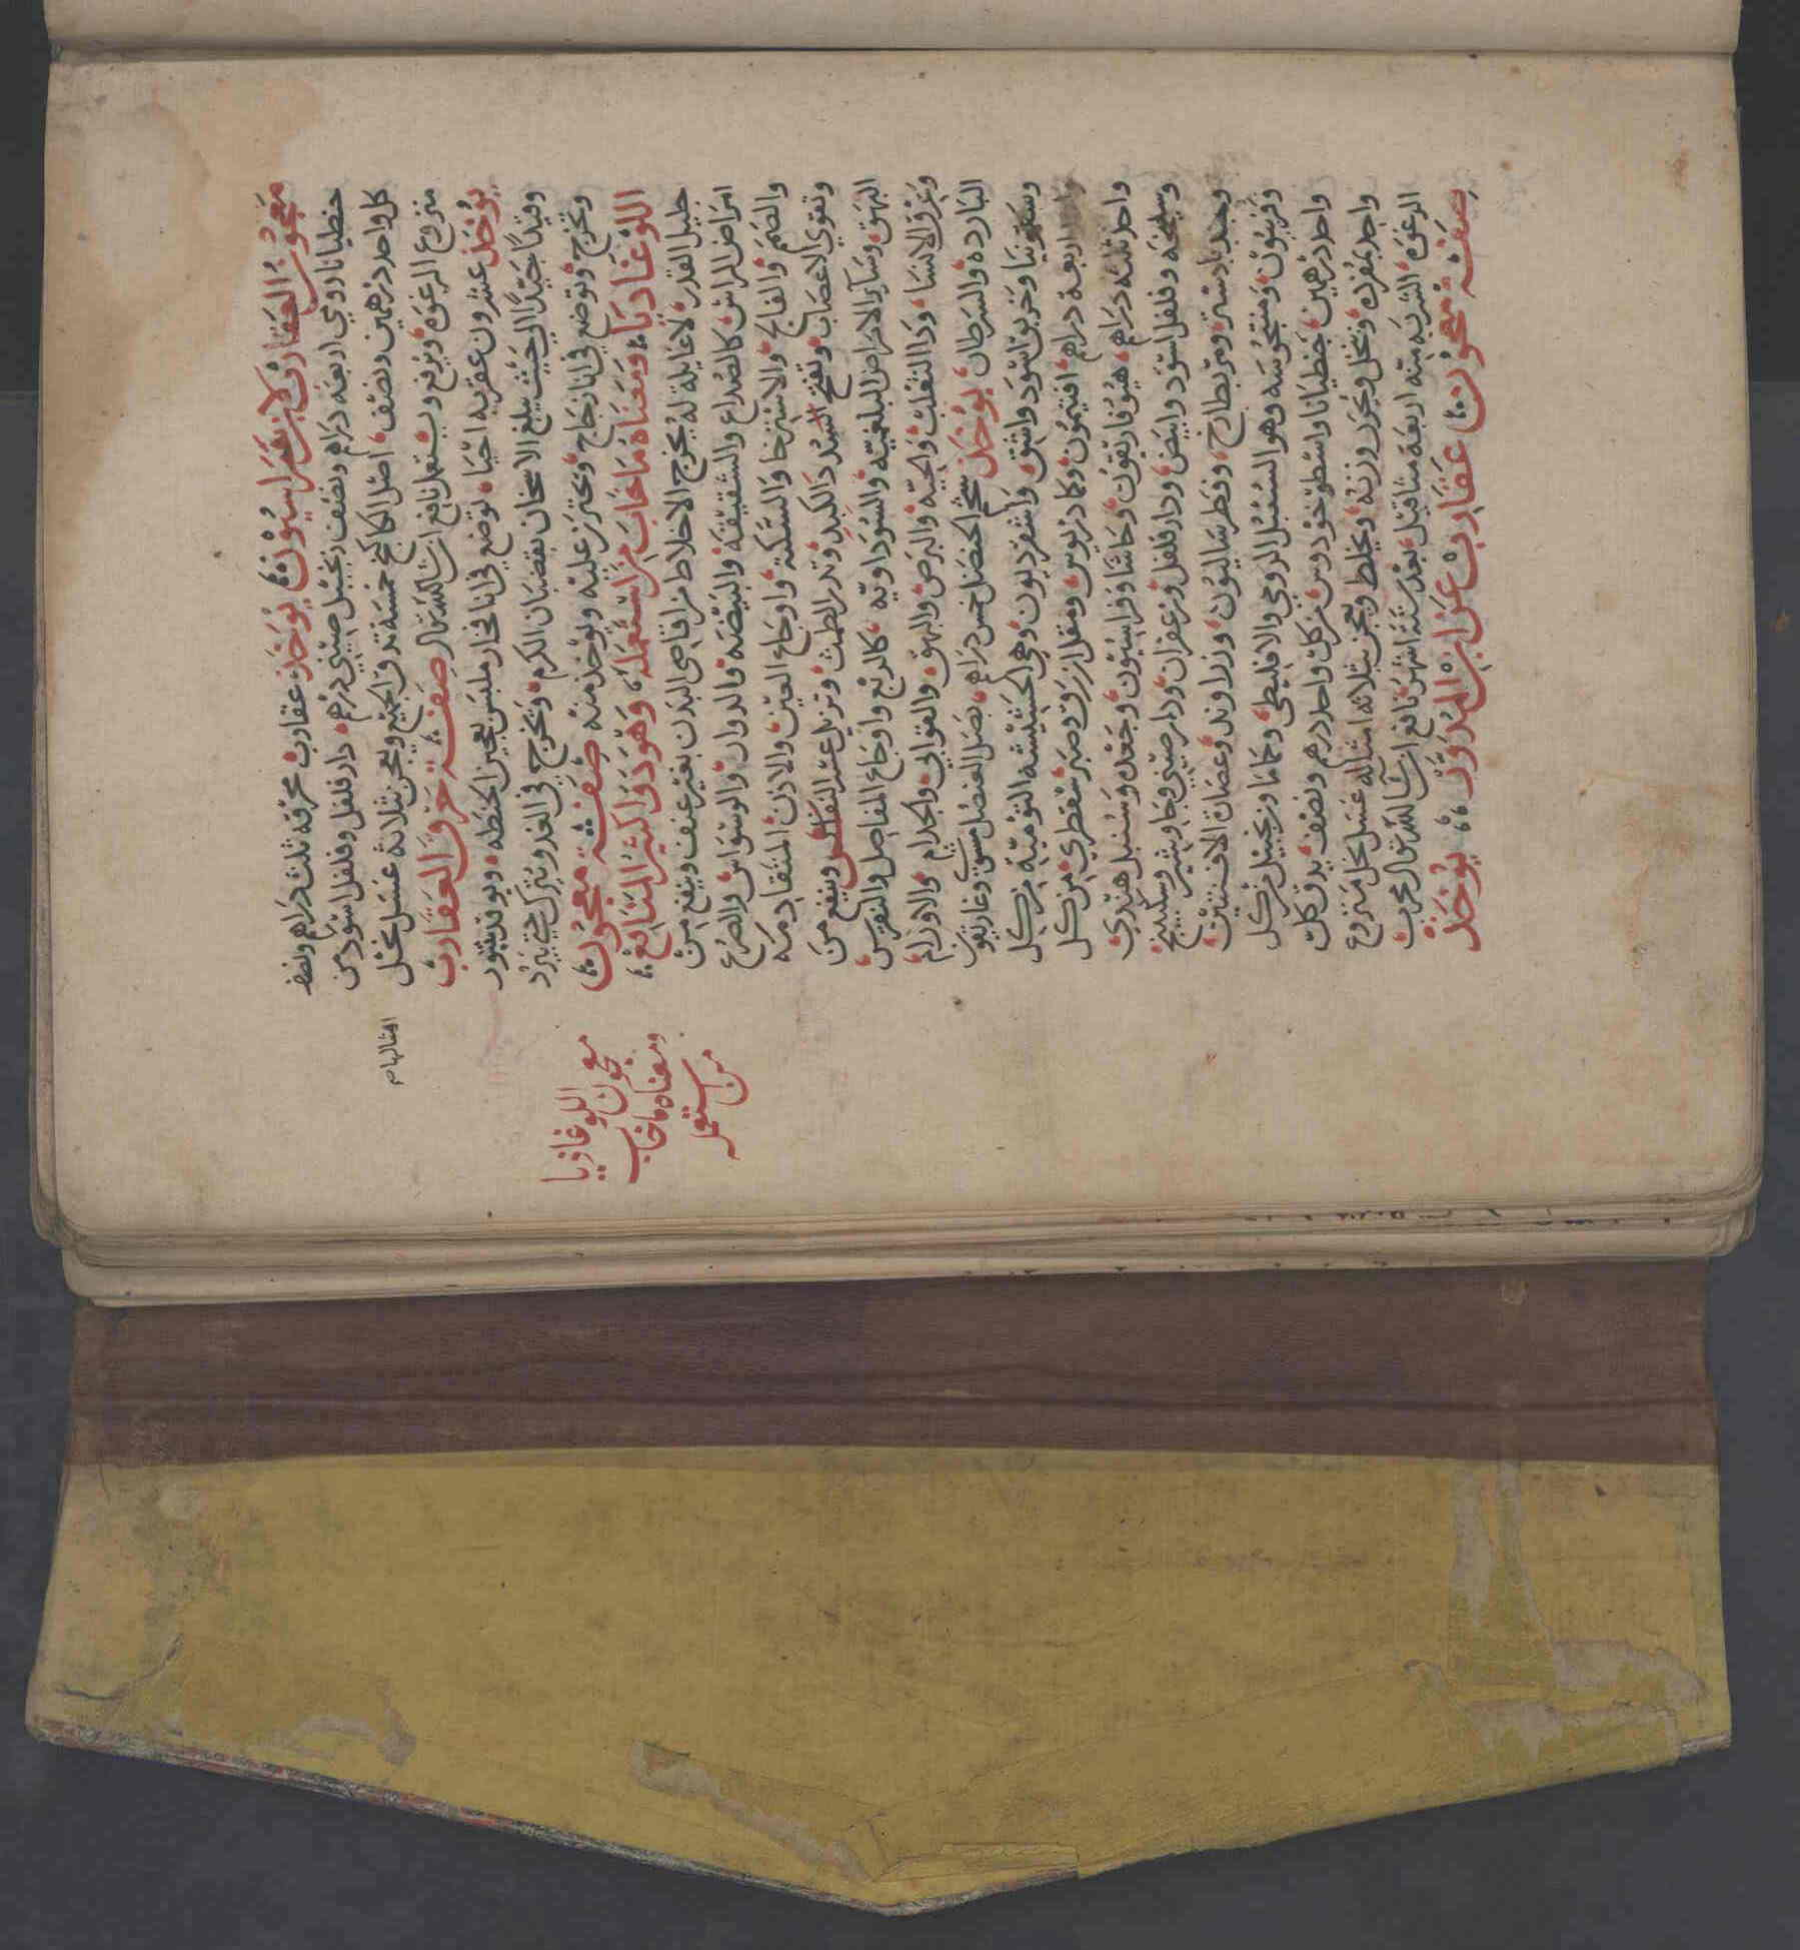 معجون العقارب لابن سرابيون يوخذ عقارب محرقه ثلث دراهم ونصف
جنطيانا رومي اربعه دراهم ونصف زنجبيل صيني درهم دارفلفل وفلفل اسود من
كل واحد درهمين ونصف اصل الكاكنج خمسة تدق الجميع ويعجن بثلاثة عسل نحل
امثالهام
منزوع الرغوه ويرفع ويستعمل نافع ان شا الله تعالى صفة حرق العقارب
يوخذ عشرون عقربه احيا توضع في انا فخار ملبس بعجين الحنطه ويوقد بتنور
وقيدا جيدا الى حيث يبلغ الاسخان بقضبان الكرم وتخرج في الغد ويترك حتى يبرد
وتخرج وتوضع في انا زجاج ويحترز عليه ويوخذ منه صفة معجون
اللوغاديا ومعناه ما خاب من استعمله وهو دوا كثير المنافع
معجون اللوغاديا
ومعناه ما خاب
من استعمله
جليل القدر لا غايلة له يخرج الاخلاط من اقاصي البدن بغير عنف وينفع من
امراض الراس كالصداع والشقيقه والبيضه والدوار والوسواس والصرع
والصمم والفالج والاسترخا والسكتة واوجاع العين والاذن المتقادمه
وتقوي الاعصاب وتفتح السدد الكبد وتدر الطمث وتزيل عسر النفاس وينفع من
البهق وساير الامراض البلغميه والسوداويه كالربع واوجاع المفاصل والنقرس
وعرق الانسا ودا الثعلب والحية والبرص والبهق والقوابي والجذام والاورام
البارده والسرطان يوخذ شحم الحنضل خمس دراهم بصل العنصل مشوي وغاريقون
وسقمونيا وخربق اسود واشق واسقرديون وهي الحشيشه الثوميه من كل
واحد اربعة دراهم افتيمون وكمادريوس ومقل ازرق وصبر سقطري من كل
واحد ثلثه دراهم هيوفاريقون وحاشا وفراسيون وجعده وسنبل هندي
وسليخه وفلفل اسود وابيض ودارفلفل وزعفران ودارصيني وجاوشير وسكبينج
وجندبادستر ومر بطارخ وفطرساليون وزراوند وعصارة الافسنتين
وفربيون ومنتجوشه وهو السنبل الرومي والاقليطي وحماما وزنجبيل من كل
واحد درهمين جنطيانا واسطوخودوس من كل واحد درهم ونصف يدق كل
واحد بمفرده وينخل ويحرر وزنه ويخلط ويعجن بثلاثة امثاله عسل نحل منزوع
الرغوه الشربه منه اربعة مثاقيل بعد ستة اشهر نافع ان شا الله تعالى مجرب
صفة معجون عقارب عن ابن المدور يوخذ